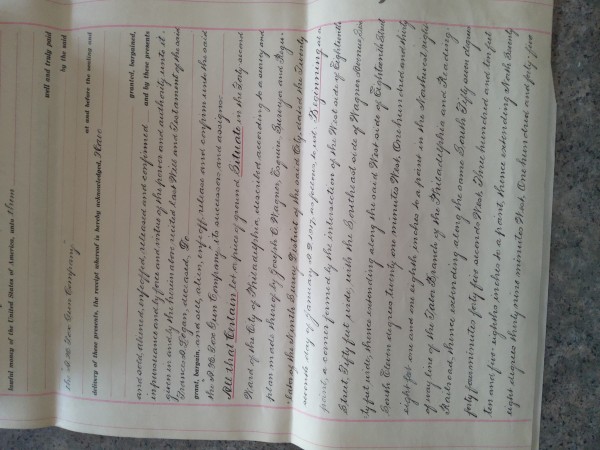 well and truly paid
lawful money of the United States of America, unto them by the said
the A. H. Fox Gun Company
at and before the sealing and
delivery of these presents, the receipt whereof is hereby acknowledged, Have granted, bargained,
and sold, aliened, enfeoffed, released and confirmed and by these presents
in pursuance and by force and virtue of the power and authority unto it
given in and by the hereinbefore recited Last Will and Testament of the said
Francis A. deceased, Do
grant, bargain, and sell, alien, enfeoff, release and confirm unto the said
the A. H. Fox Gun Company, its successors and assigns.
All that Certain lot or piece of ground Situate in the Forty second
Ward of the City of Philadelphia, described according to a survey and
plan made thereof by Joseph C. Wagner, Esquire, Surveyor and Regu-
lator of the Ninth Survey District of the said City, dated the Twenty
seventh day of January A.D. as follows, to wit:- Beginning at a
point, a corner formed by the intersection of the West side of Eighteenth
Street, Fifty feet wide, with the Southeast side of Wagner Avenue Six-
ty feet wide, thence extending along the said West side of Eighteenth Street
South Eleven degrees twenty one minutes West, One hundred and thirty
eight feet one and one eighth inches to a point in the Northwest right
of way line of the Branch of the Philadelphia and Reading
Railroad, thence extending along the same South Fifty seven degrees
forty four minutes forty five seconds West, Three hundred and ten feet
ten and five eighths inches to a point, thence extending North Twenty
eight degrees thirty nine minutes West, One hundred and forty five